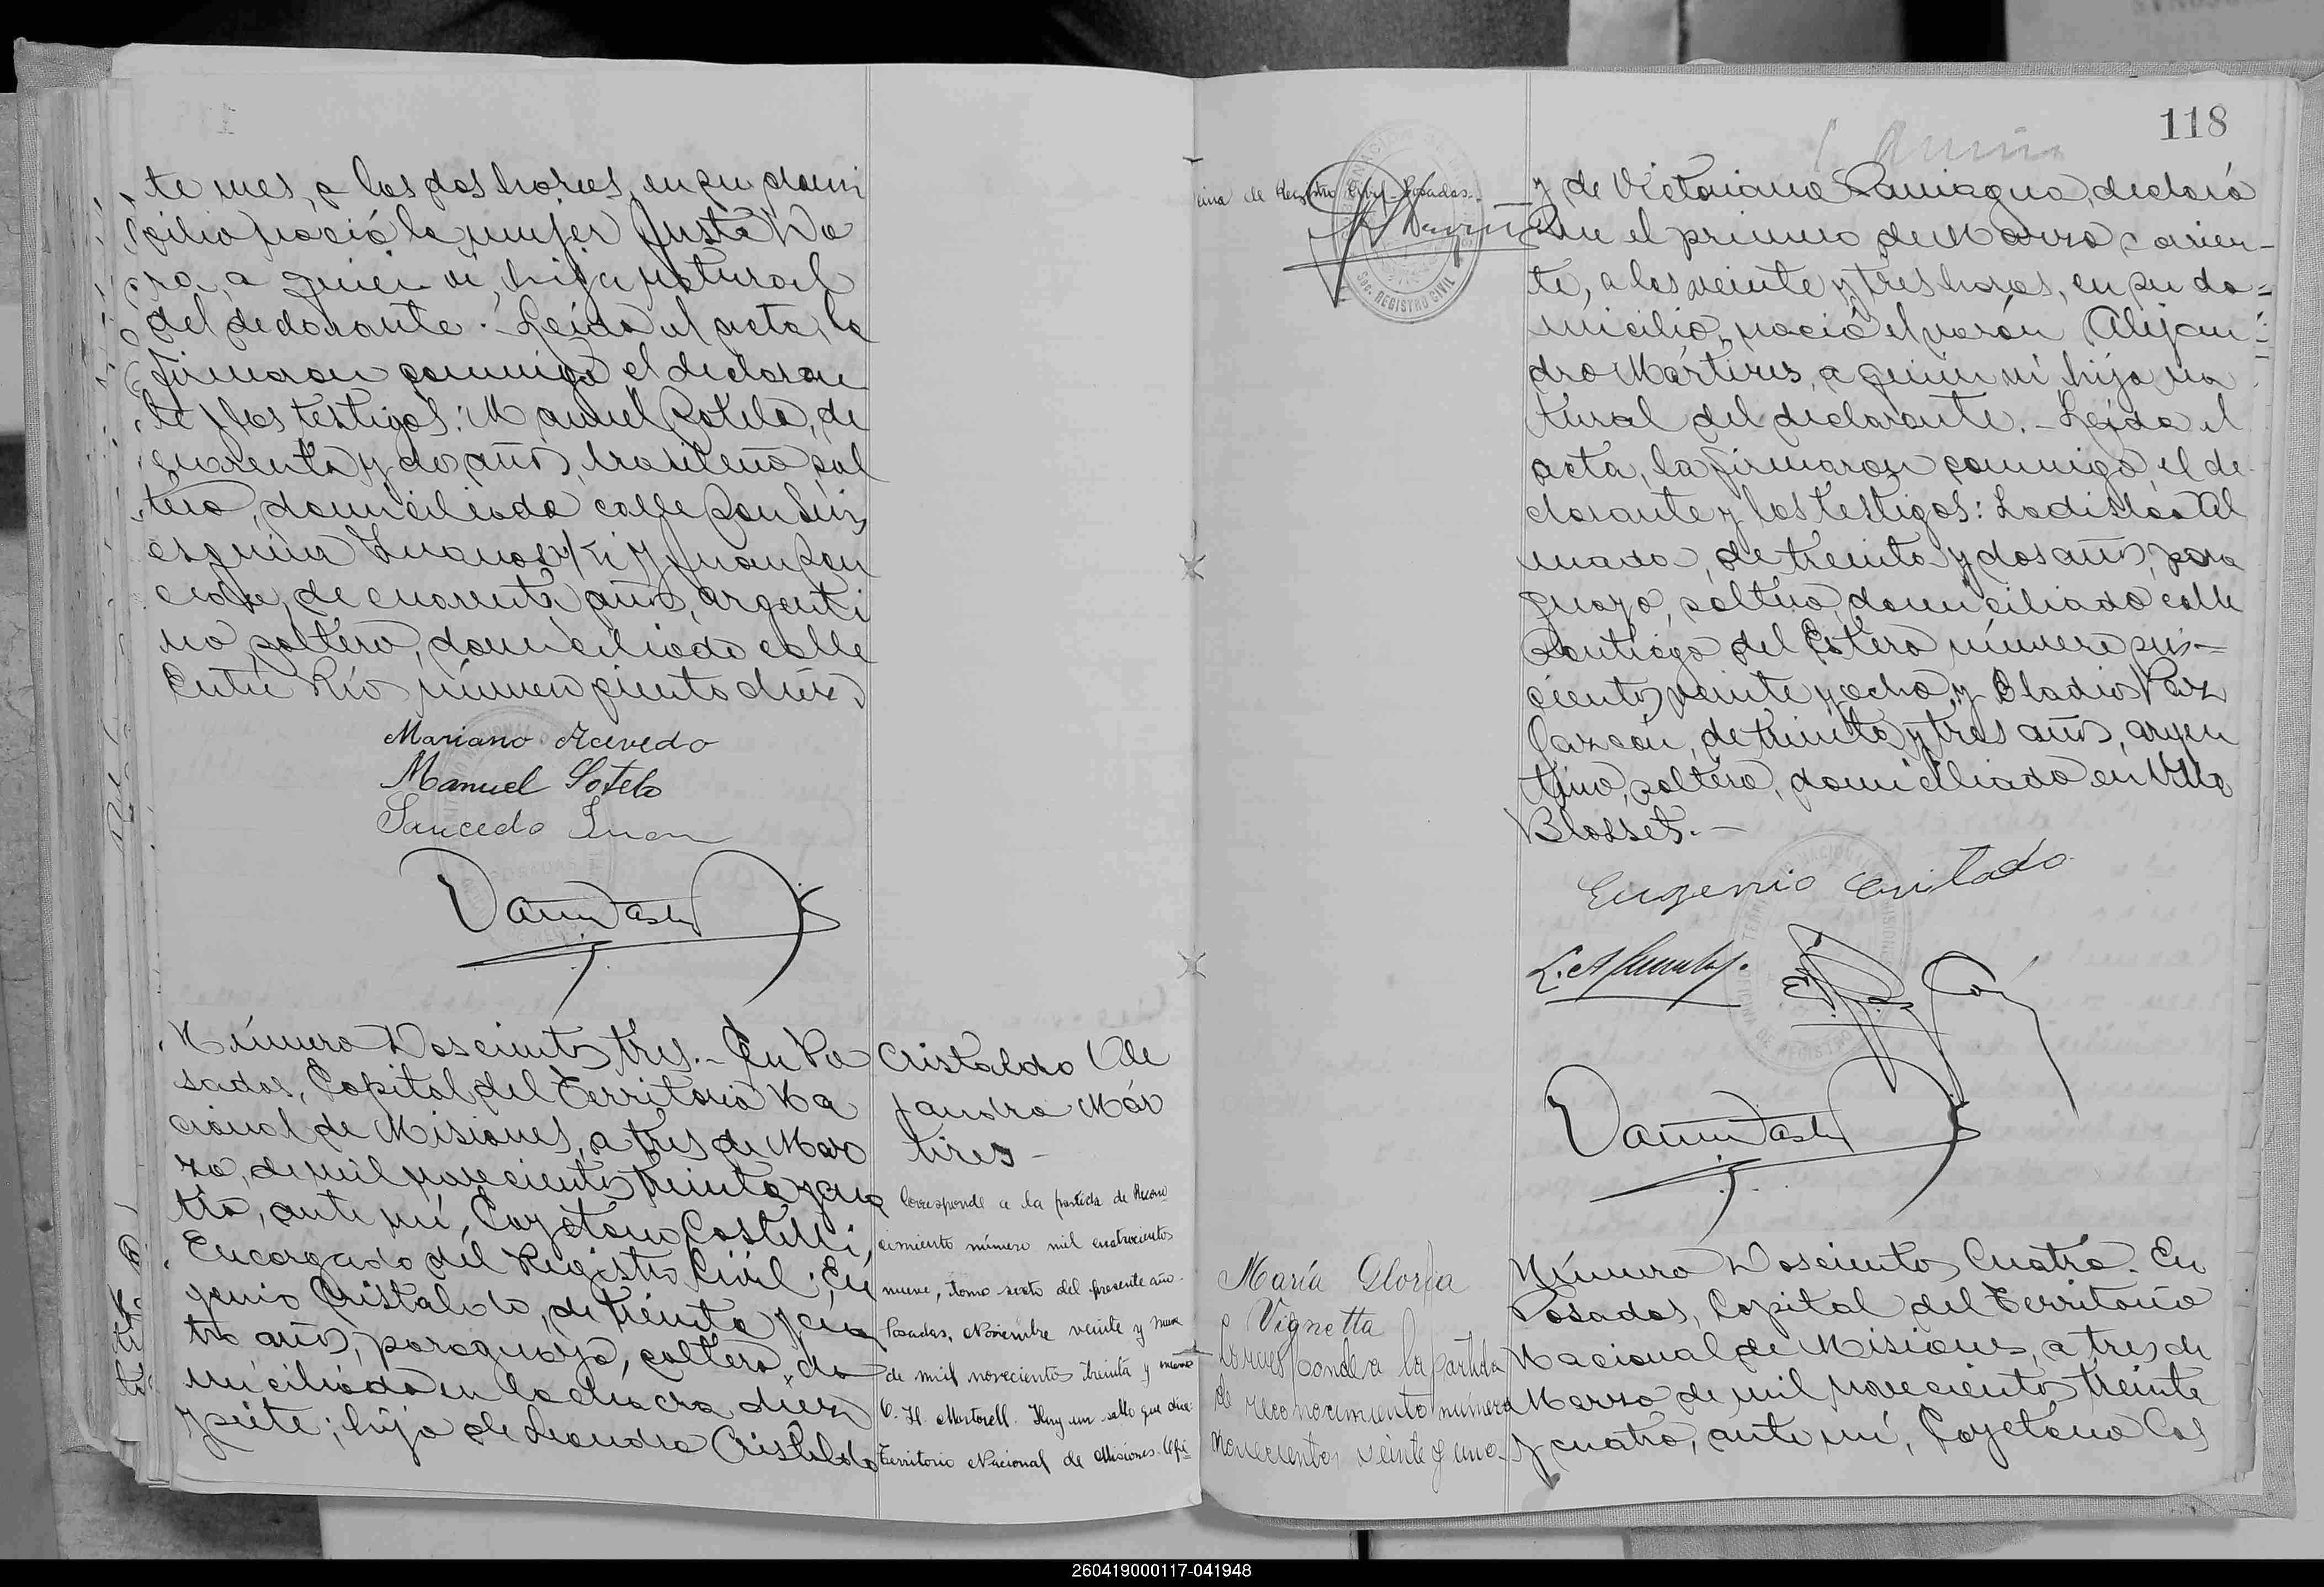 te mes, a las dos horas, en su domi
cilio nació la mujer Justa Do
ra, a quien vi, hija natural
del declarante. Leída el acta, la
firmaron conmigo el declaran
te y los testigos: Manuel Sotelo, de
cuarenta y dos años, brasileño, sol
tero, domiciliado calle San Luis
esquina y Juan Sau
cedo, de cuarenta años, argenti
no, soltero, domiciliado calle
Entre Ríos número ciento
Mariano Acevedo
Manuel Sotelo
Saucedo Juan
Número Doscientos tres.- En Po
sadas, Capital del Territorio Na
cional de Misiones, a tres de Mar
zo, de mil novecientos treinta y cua
tro, ante mí, Cayetano Castelli,
Encargado del Registro Civil; Eu
genio Cristaldo, de treinta y cua
tro años, paraguayo, soltero, do
miciliado en la chacra diez
y siete; hijo de Leandra Cristaldo
Cristaldo Ale
jandro Már
tires-
Corresponde a la partida de Recono
cimiento número mil cuatrocientos
nueve, tomo sexto del presente año.
Posadas, Noviembre veinte y nueve
de mil novecientos treinta y nueve
C. H. Martorell. Hay un sello que dice:
Territorio Nacional de Misiones. Ofi
cina de Registro Civil - Posadas.
SOC. REGISTRO CIVIL
118
y de Victoriana Paniagua, declaró
Que el primero de Marzo corrien-
te, a las veinte y tres horas, en su do=
micilio, nació el varón Alejan
dro Mártires, a quien vi hijo na
tural del declarante.- Leída el
acta, la firmaron conmigo, el de
clarante y los testigos: Ladislao Al
mada, de treinta y dos años, para
guayo, soltero, domiciliado calle
Santiago del Estero número seis-
cientos veinte y ocho, y Eladio Paz
de treinta y tres años, argen
tino, soltero, domiciliado en Villa
Blosset.-
Eugenio Cristaldo
María Gloria
Vignetta
Corresponde a la partida
de reconocimiento número
Novecientos veinte y uno.
Número Doscientos Cuatro. En
Posadas, Capital del Territorio
Nacional de Misiones, a tres de
Marzo de mil novecientos treinta
y cuatro, ante mí, Cayetano Cas
260419000117-041948